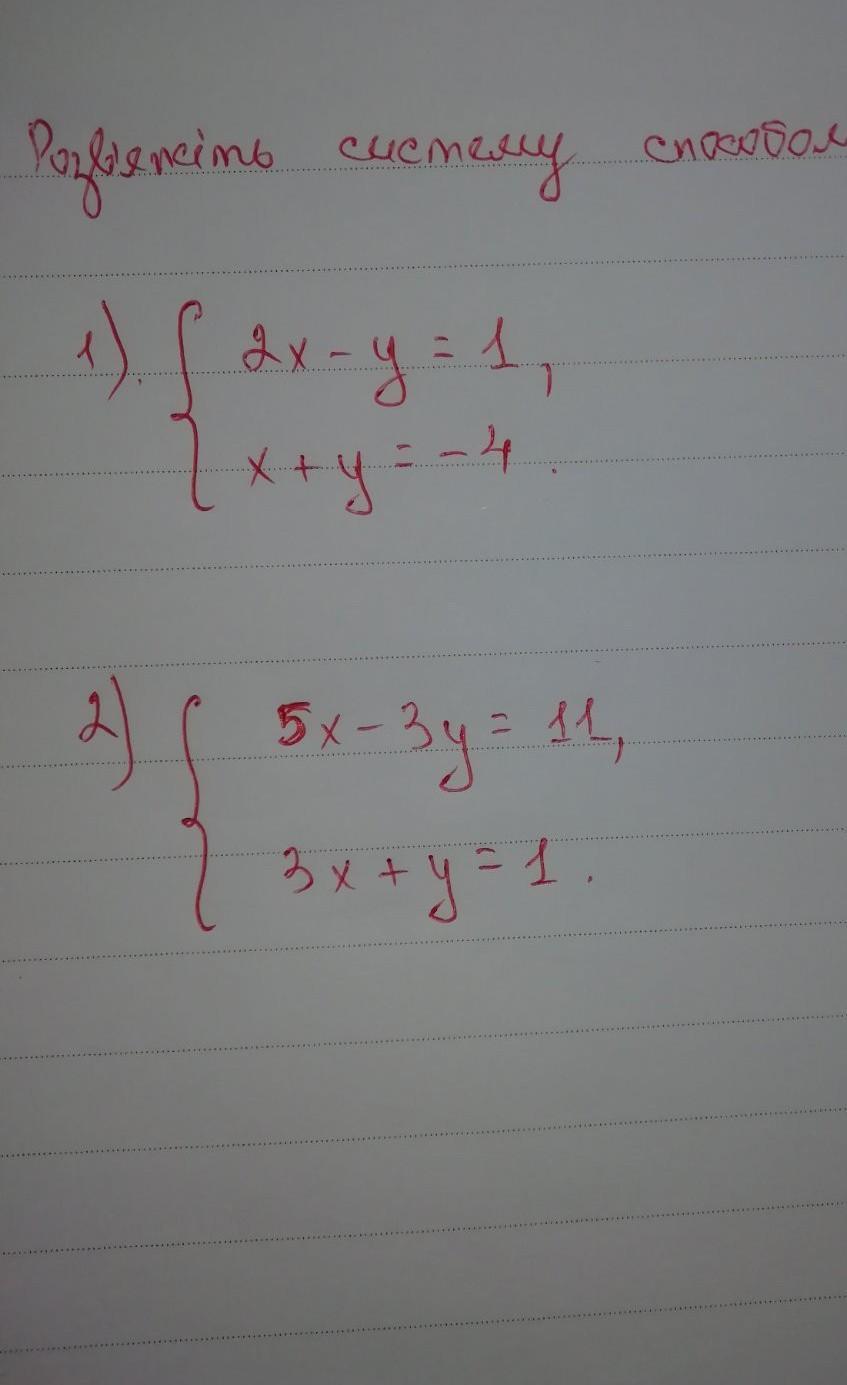 Розвяжіть систему способом
1). { 2x - y = 1,
x + y = -4.
2) { 5x - 3y = 11,
3x + y = 1.